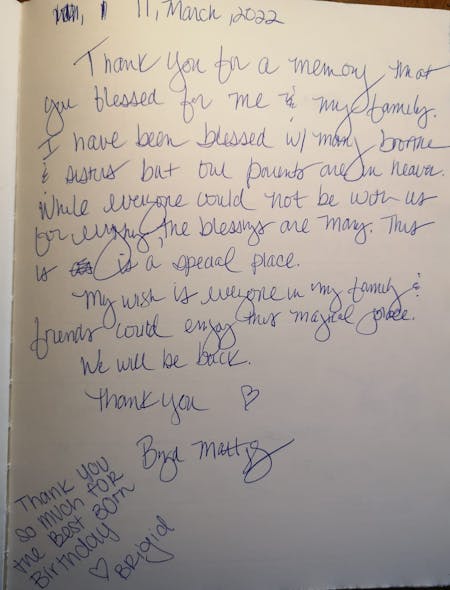 11, March, 2022
Thank you for a memory that
you blessed for me & my family.
I have been blessed w/ many brothe
& sisters but our parents are in heaven.
While everyone could not be with us
for everything, the blessings are many. This
is is a special place.
My wish is everyone in my family &
friends could enjoy this magical place.
We will be back.
Thank you ♡
Thank you
so much for
the Best Born
Birthday
♡ Brigid